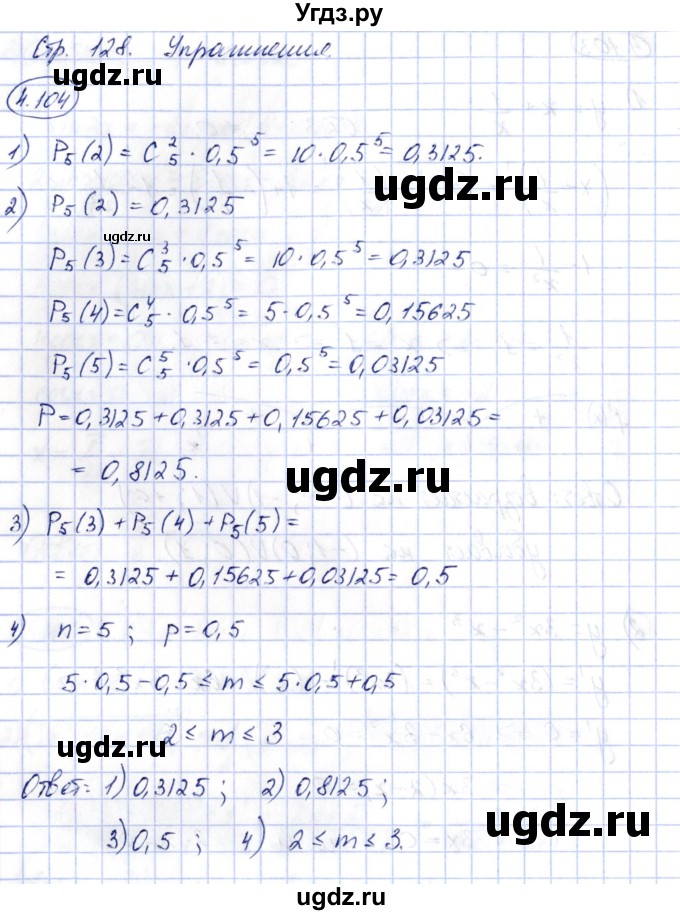 Угдз.ру
Стр. 128. Упражнения.
ugdz.ru
4.104
1) P₅(2) = C₅² · 0,5⁵ = 10 · 0,5⁵ = 0,3125.
ugdz.ru
2) P₅(2) = 0,3125
ugdz.ru
P₅(3) = C₅³ · 0,5⁵ = 10 · 0,5⁵ = 0,3125
P₅(4) = C₅⁴ · 0,5⁵ = 5 · 0,5⁵ = 0,15625
P₅(5) = C₅⁵ · 0,5⁵ = 0,5⁵ = 0,03125
ugdz.ru
P = 0,3125 + 0,3125 + 0,15625 + 0,03125 =
= 0,8125.
ugdz.ru
3) P₅(3) + P₅(4) + P₅(5) =
= 0,3125 + 0,15625 + 0,03125 = 0,5
4) n = 5 ; p = 0,5
ugdz.ru
5 · 0,5 - 0,5 ≤ m ≤ 5 · 0,5 + 0,5
2 ≤ m ≤ 3
ugdz.ru
Ответ: 1) 0,3125 ; 2) 0,8125 ;
ugdz.ru
3) 0,5 ; 4) 2 ≤ m ≤ 3.
Угдз.ру